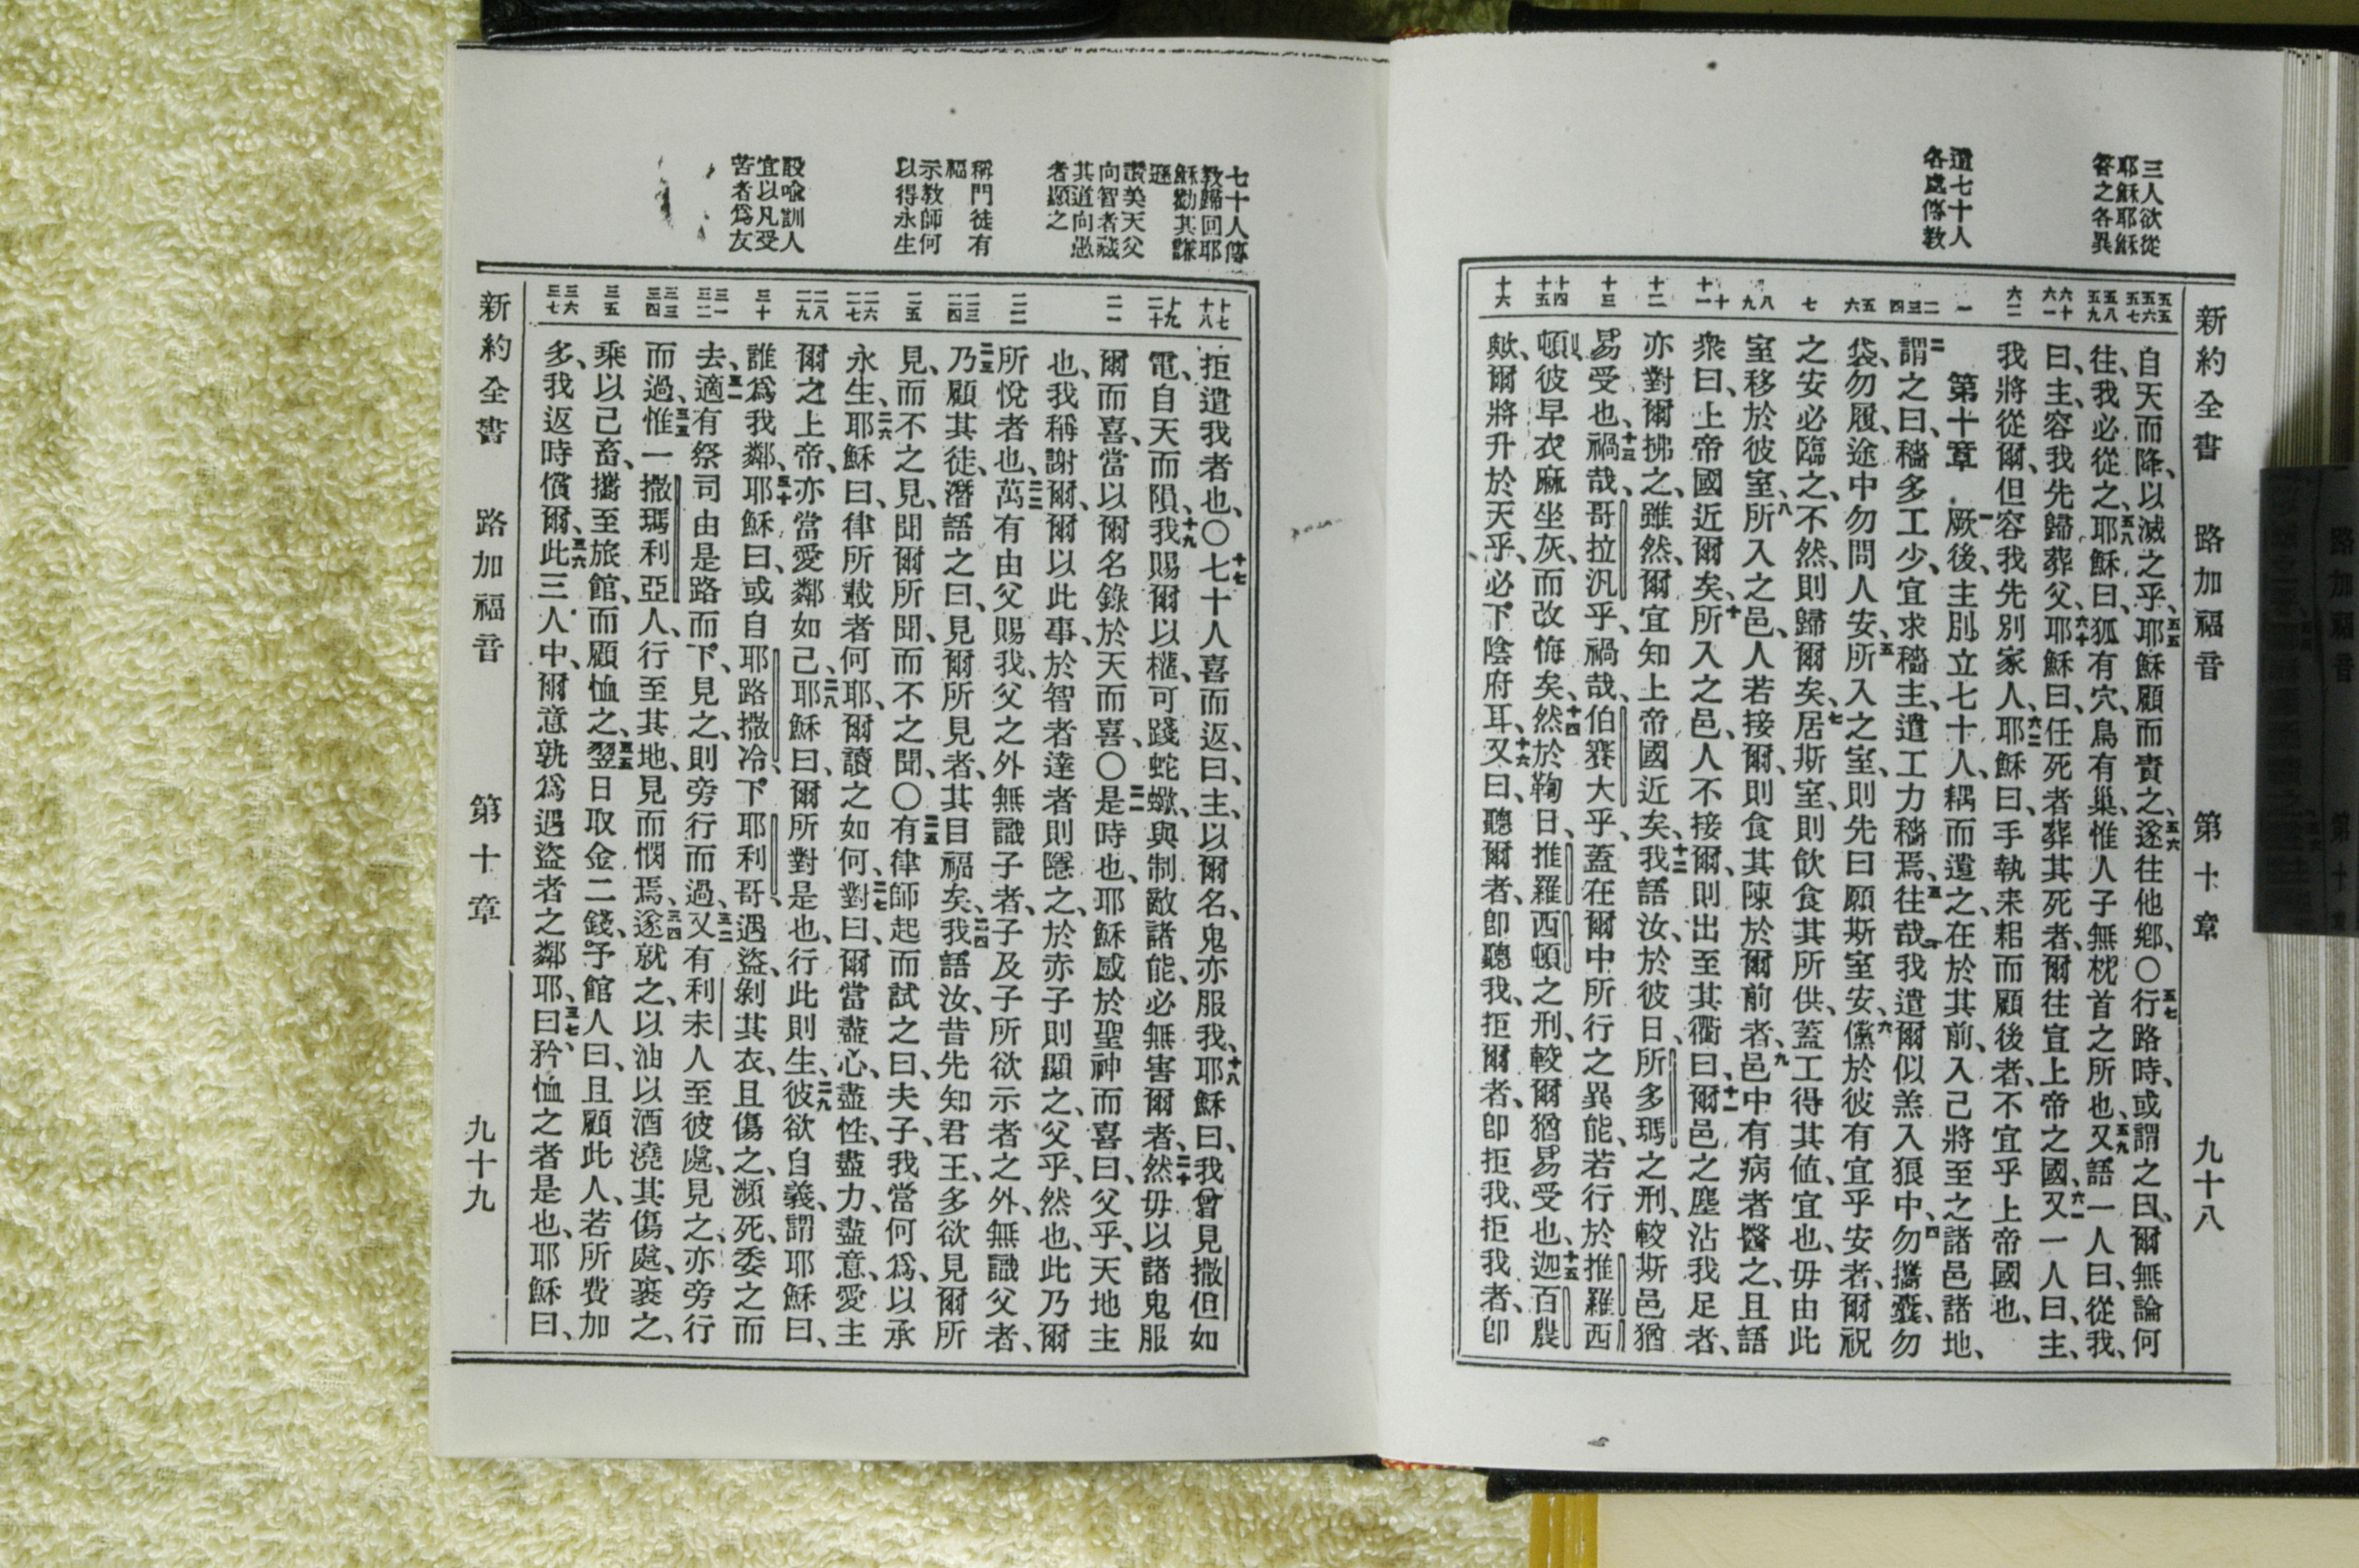 三人欲從
耶穌耶穌
答之各異
遣七十人
各處傳教
新約全書 路加福音 第十章 九十八
五五 五六 五七 五八 五九 六十 六一 六二 一 二 三 四 五 六 七 八 九 十 十一 十二 十三 十四 十五 十六
自天而降、以滅之乎、五五耶穌顧而責之、五六遂往他鄉、〇五七行路時、或謂之曰、爾無論何
往、我必從之、五八耶穌曰、狐有穴、鳥有巢、惟人子無枕首之所也、五九又語一人曰、從我、
曰、主、容我先歸葬父、六十耶穌曰、任死者葬其死者、爾往宜上帝之國、六一又一人曰、主、
我將從爾、但容我先別家人、六二耶穌曰、手執耒耜而顧後者、不宜乎上帝國也、
第十章 一厥後、主別立七十人、耦而遣之、在於其前、入己將至之諸邑諸地、
二謂之曰、穡多工少、宜求穡主、遣工力穡焉、三往哉、我遣爾似羔入狼中、四勿攜囊、勿
袋、勿履、途中勿問人安、五所入之室、則先曰願斯室安、六儻於彼有宜乎安者、爾祝
之安必臨之、不然、則歸爾矣、七居斯室、則飲食其所供、蓋工得其值、宜也、毋由此
室移於彼室、八所入之邑、人若接爾、則食其陳於爾前者、九邑中有病者醫之、且語
衆曰、上帝國近爾矣、十所入之邑、人不接爾、則出至其衢曰、十一爾邑之塵沾我足者、
亦對爾拂之、雖然、爾宜知上帝國近矣、十二我語汝、於彼日、所多瑪之刑、較斯邑猶
易受也、十三禍哉、哥拉汛乎、禍哉、伯賽大乎、蓋在爾中所行之異能、若行於推羅西
頓、彼早衣麻坐灰、而改悔矣、十四然於鞫日、推羅西頓之刑、較爾猶易受也、十五迦百農
歟、爾將升於天乎、必下陰府耳、十六又曰、聽爾者、卽聽我、拒爾者、卽拒我、拒我者、卽
七十人傳
教歸回耶
穌勸其謙
遜
讚美天父
向智者藏
其道向愚
者顯之
稱門徒有
福
示教師何
以得永生
設喻訓人
宜以凡受
苦者爲友
十七 十八 十九 二十 二一 二二 二三 二四 二五 二六 二七 二八 二九 三十 三一 三二 三三 三四 三五 三六 三七
拒遣我者也、〇十七七十人喜而返、曰、主、以爾名、鬼亦服我、十八耶穌曰、我曾見撒但如
電、自天而隕、十九我賜爾以權、可踐蛇蠍、與制敵諸能、必無害爾者、二十然毋以諸鬼服
爾而喜、當以爾名錄於天而喜、〇二一是時也、耶穌感於聖神而喜曰、父乎、天地主
也、我稱謝爾、爾以此事、於智者達者則隱之、於赤子則顯之、父乎、然也、此乃爾
所悅者也、二二萬有由父賜我、父之外無識子者、子及子所欲示者之外、無識父者、
二三乃顧其徒、潛語之曰、見爾所見者、其目福矣、二四我語汝、昔先知君王、多欲見爾所
見、而不之見、聞爾所聞、而不之聞、〇二五有律師起而試之曰、夫子、我當何爲、以承
永生、二六耶穌曰、律所載者何耶、爾讀之如何、二七對曰、爾當盡心、盡性、盡力、盡意、愛主
爾之上帝、亦當愛鄰如己、二八耶穌曰、爾所對是也、行此則生、二九彼欲自義、謂耶穌曰、
誰爲我鄰、三十耶穌曰、或自耶路撒冷下耶利哥、遇盜、剝其衣、且傷之、瀕死、委之而
去、三一適有祭司由是路而下、見之、則旁行而過、三二又有利未人至彼處、見之、亦旁行
而過、三三惟一撒瑪利亞人、行至其地、見而憫焉、三四遂就之、以油以酒澆其傷處、裹之、
乘以己畜、攜至旅館、而顧恤之、三五翌日取金二錢、予館人曰、且顧此人、若所費加
多、我返時償爾、三六此三人中、爾意孰爲遇盜者之鄰耶、三七曰、矜恤之者是也、耶穌曰、
新約全書 路加福音 第十章 九十九